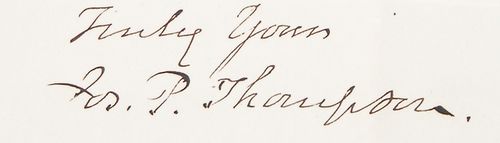 Truly Yours
Jos. P. Thompson.